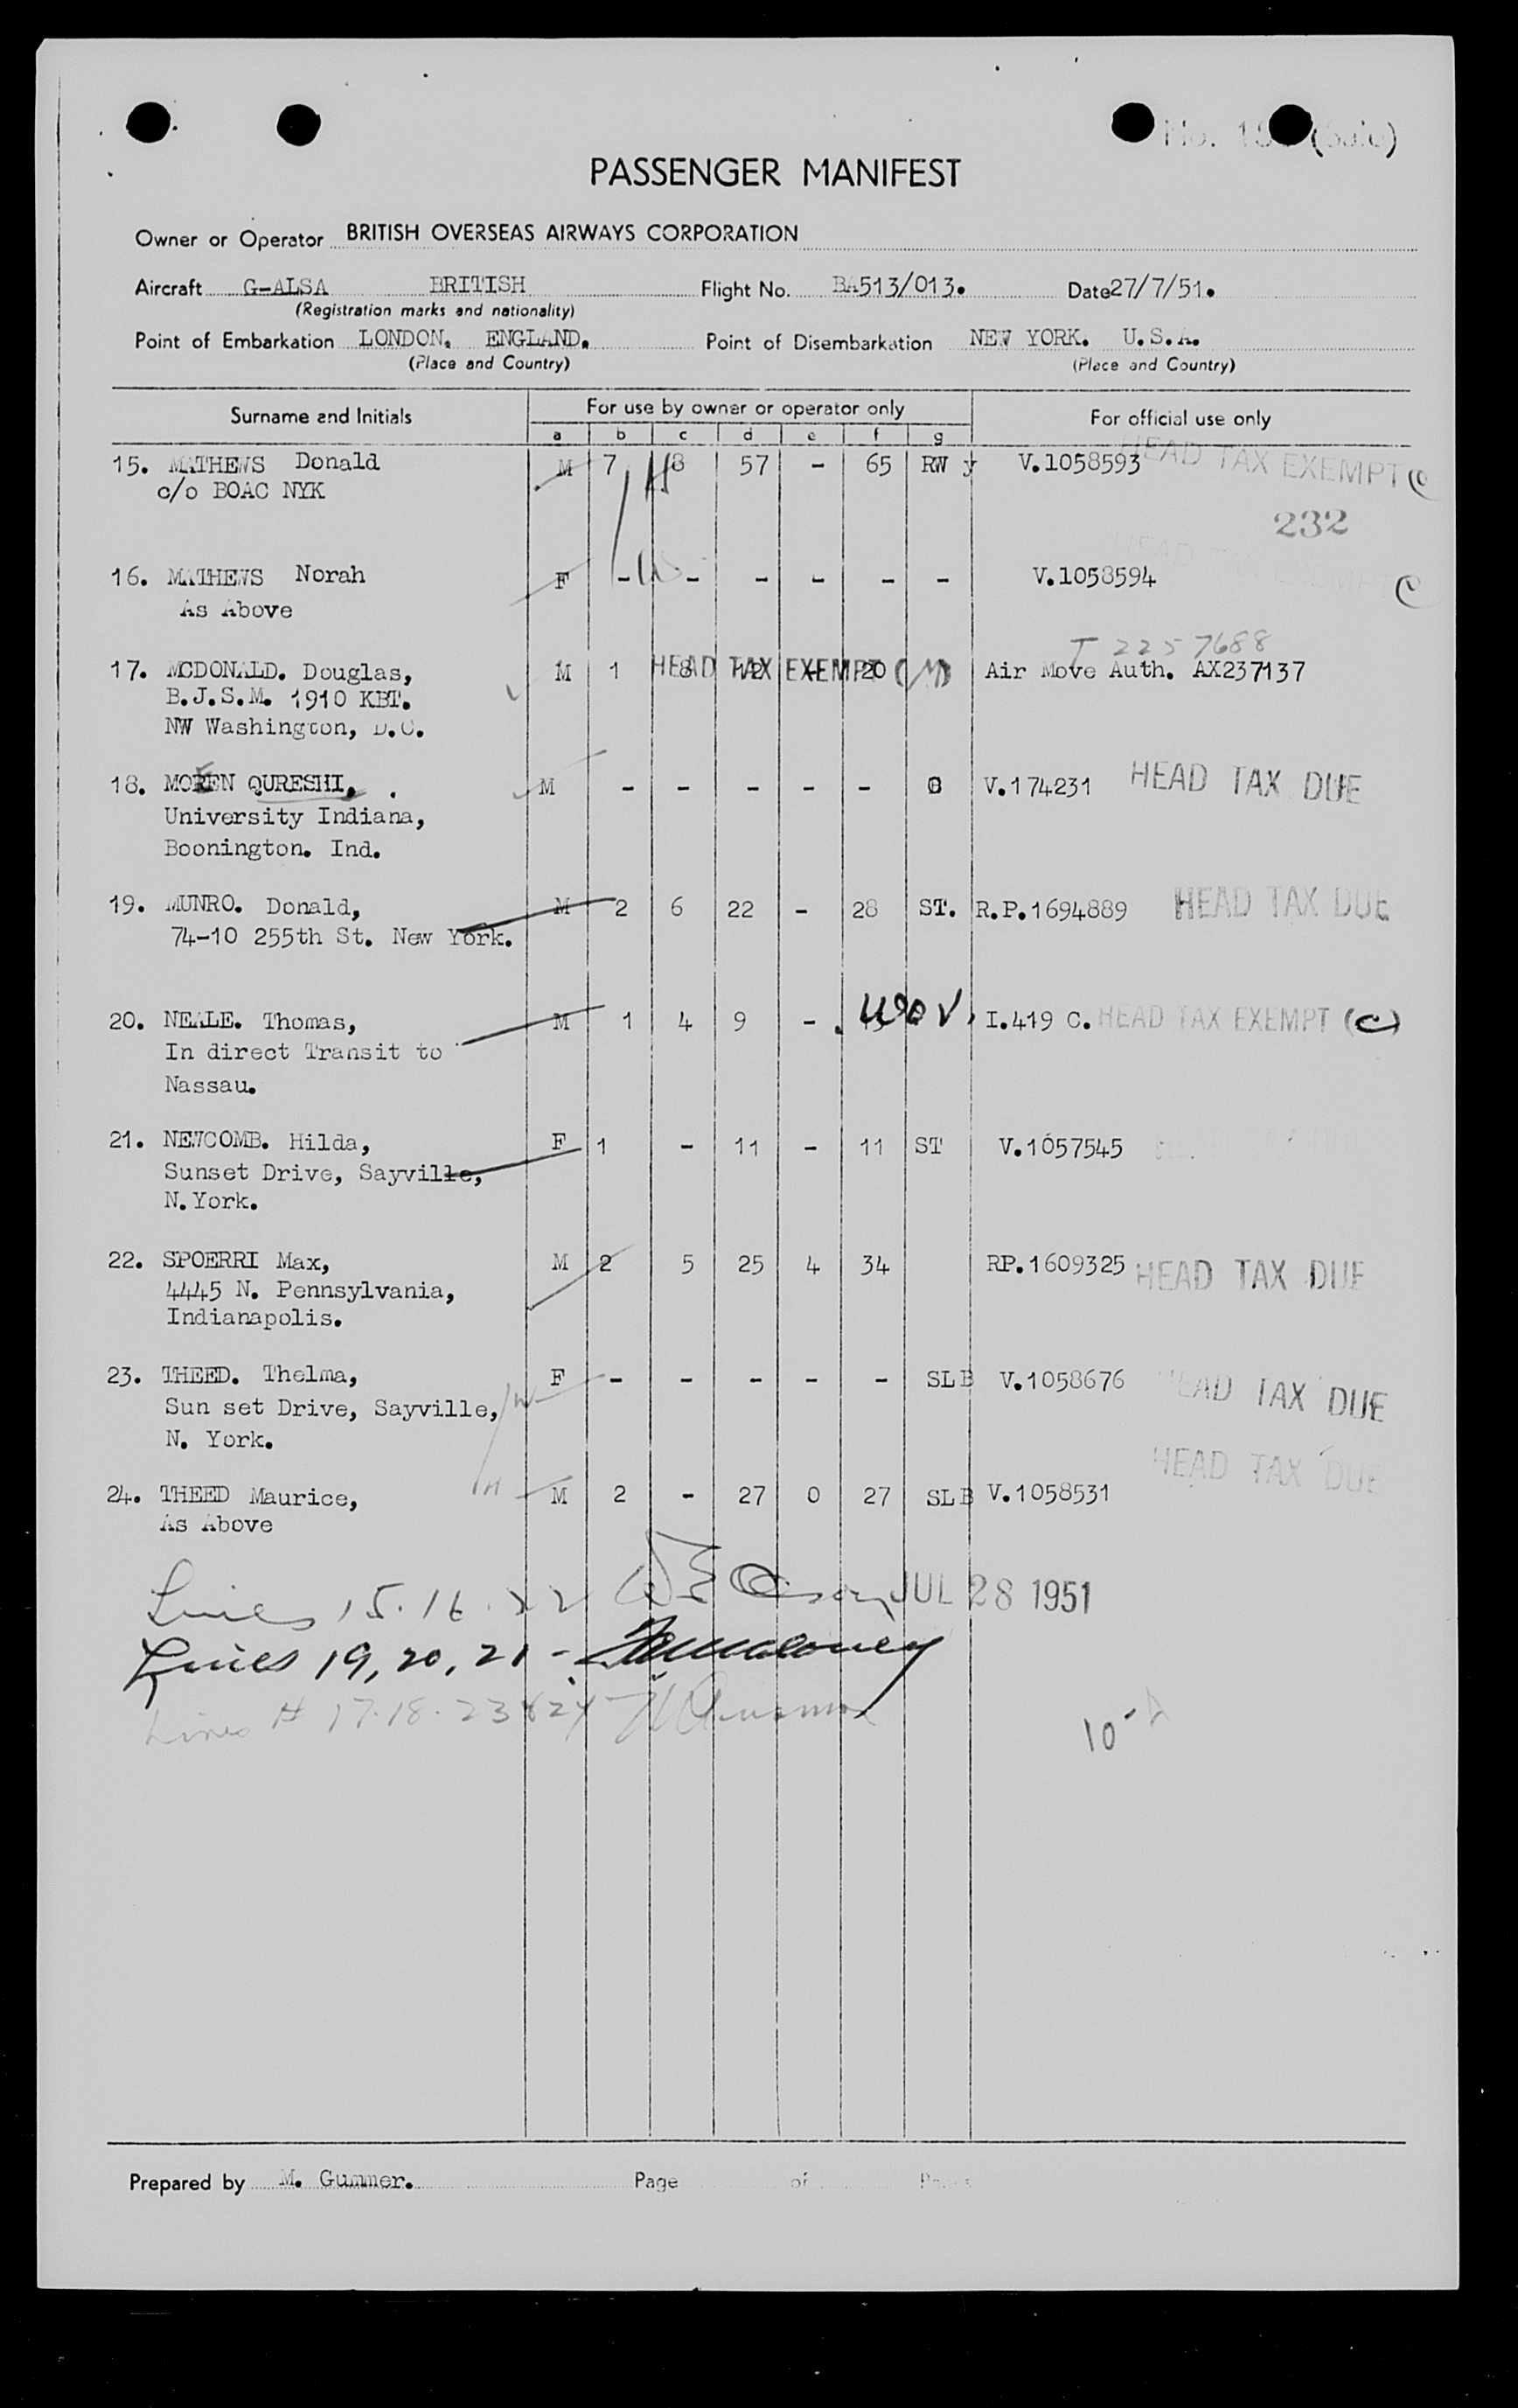 PASSENGER MANIFEST
Owner or Operator BRITISH OVERSEAS AIRWAYS CORPORATION
Aircraft G-ALSA BRITISH Flight No. BA513/013. Date 27/7/51.
(Registration marks and nationality)
Point of Embarkation LONDON. ENGLAND. Point of Disembarkation NEW YORK. U.S.A.
(Place and Country) (Place and Country)
Surname and Initials For use by owner or operator only For official use only
a b c d e f g
15. MATHEWS Donald M 7 8 57 - 65 RW y V.1058593 HEAD TAX EXEMPT (C
c/o BOAC NYK
232
16. MATHEWS Norah F - - - - - - V.1058594 C
As Above
T 2257688
17. MCDONALD. Douglas, M 1 8 12 - 20 HEAD TAX EXEMPT (M) Air Move Auth. AX237137
B.J.S.M. 1910 KBT.
NW Washington, D.C.
18. MOEEN QURESHI. M - - - - - V.174231 HEAD TAX DUE
University Indiana,
Boonington. Ind.
19. MUNRO. Donald, M 2 6 22 - 28 ST. R.P.1694889 HEAD TAX DUE
74-10 255th St. New York.
20. NEALE. Thomas, M 1 4 9 - I.419 C. HEAD TAX EXEMPT (C)
In direct Transit to
Nassau.
21. NEWCOMB. Hilda, F 1 - 11 - 11 ST V.1057545
Sunset Drive, Sayville,
N.York.
22. SPOERRI Max, M 2 5 25 4 34 RP.1609325 HEAD TAX DUE
4445 N. Pennsylvania,
Indianapolis.
23. THEED. Thelma, F - - - - - SLB V.1058676 HEAD TAX DUE
Sun set Drive, Sayville,
N. York.
HEAD TAX DUE
24. THEED Maurice, M 2 - 27 0 27 SLB V.1058531
As Above
Lines 15.16.22 JUL 28 1951
Lines 19, 20, 21 -
Lines # 17.18.23 & 24
10
Prepared by M. Gummer. Page of